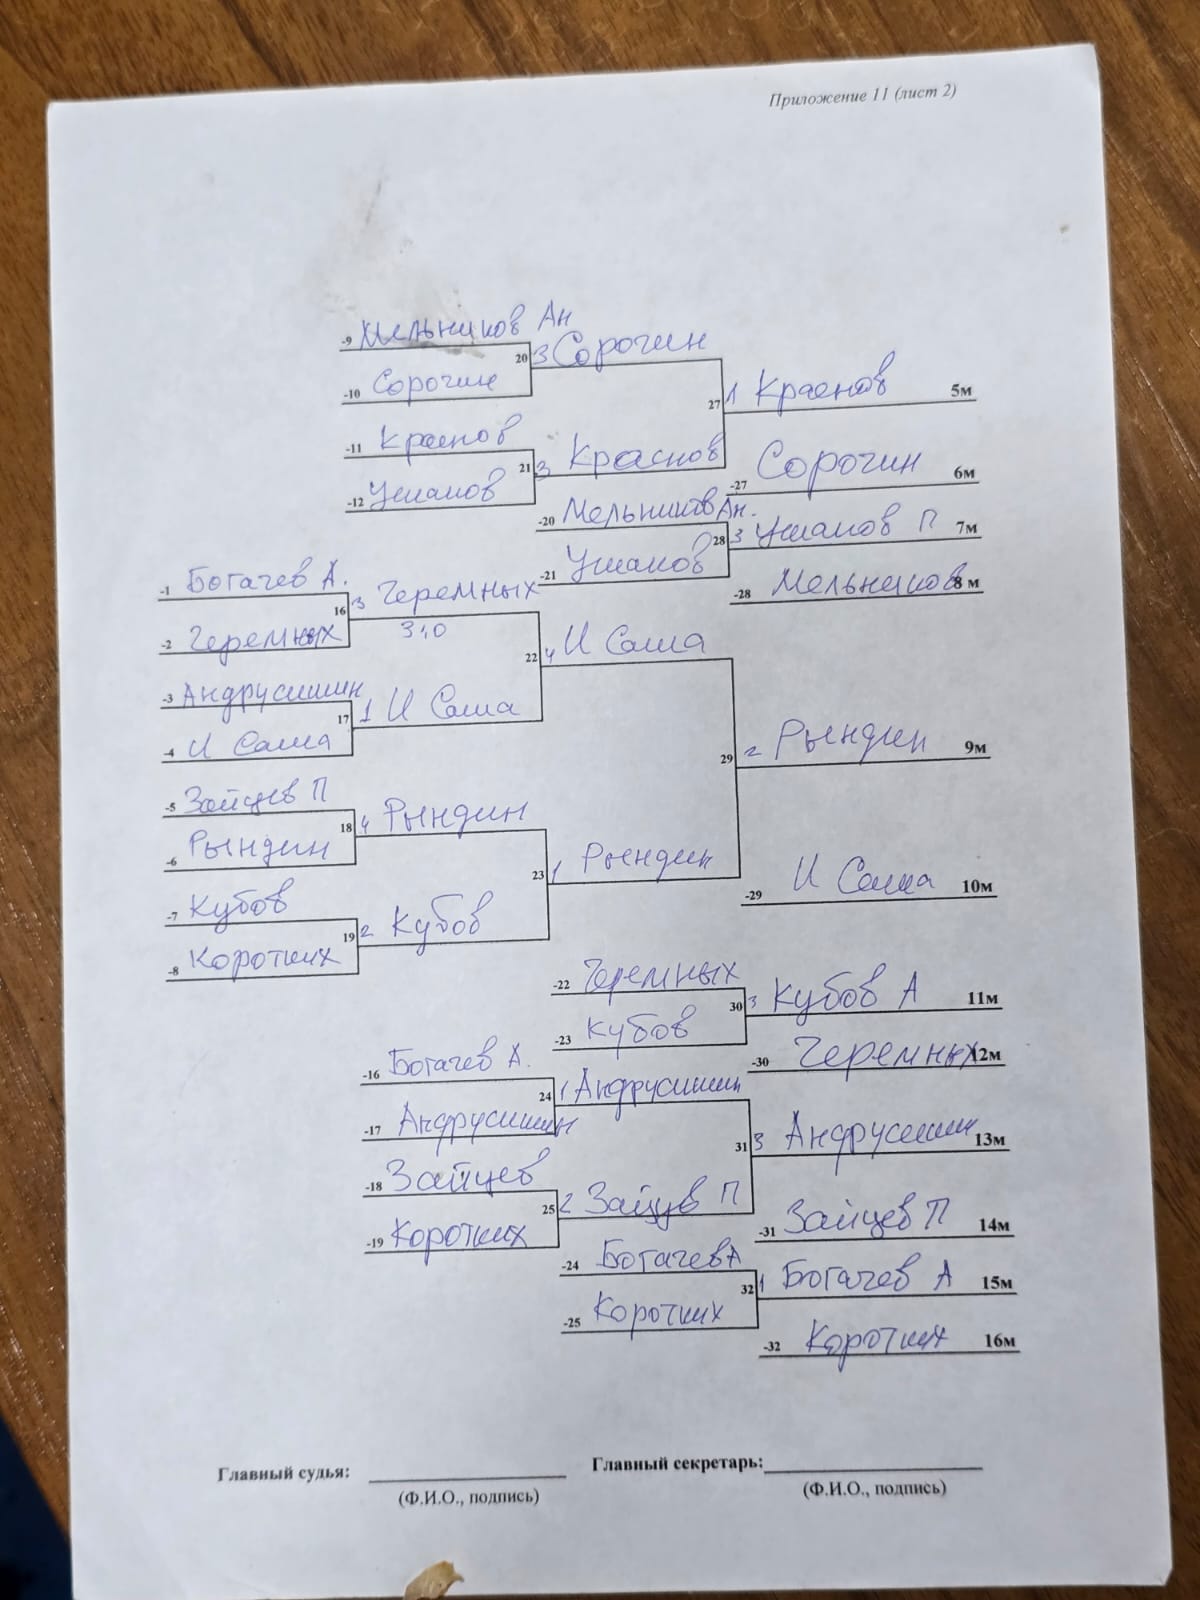 Приложение 11 (лист 2)
-9 Мельников Ан
20 3 Сорочин
-10 Сорочин
27 1 Краснов 5м
-11 Краснов
21 3 Краснов
-12 Ушаков
-27 Сорочин 6м
-20 Мельников Ан.
28 3 Ушаков П 7м
-21 Ушаков
-28 Мельников 8 м
-1 Богачев А.
16 3 Черемных
3:0
-2 Черемных
22 4 И Саша
-3 Андрусишин
17 1 И Саша
-4 И Саша
29 2 Рындин 9м
-5 Зайцев П
18 4 Рындин
-6 Рындин
23 1 Рындин
-29 И Саша 10м
-7 Кубов
19 2 Кубов
-8 Коротких
-22 Черемных
30 3 Кубов А 11м
-23 Кубов
-30 Черемных 12м
-16 Богачев А.
24 1 Андрусишин
-17 Андрусишин
31 3 Андрусишин 13м
-18 Зайцев
25 2 Зайцев П
-19 Коротких
-31 Зайцев П 14м
-24 Богачев А
32 1 Богачев А 15м
-25 Коротких
-32 Коротких 16м
Главный судья: Главный секретарь:
(Ф.И.О., подпись) (Ф.И.О., подпись)